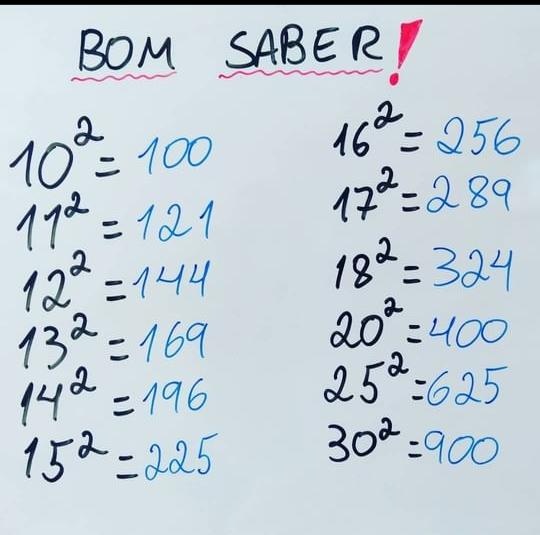 BOM SABER!
10² = 100
11² = 121
12² = 144
13² = 169
14² = 196
15² = 225
16² = 256
17² = 289
18² = 324
20² = 400
25² = 625
30² = 900